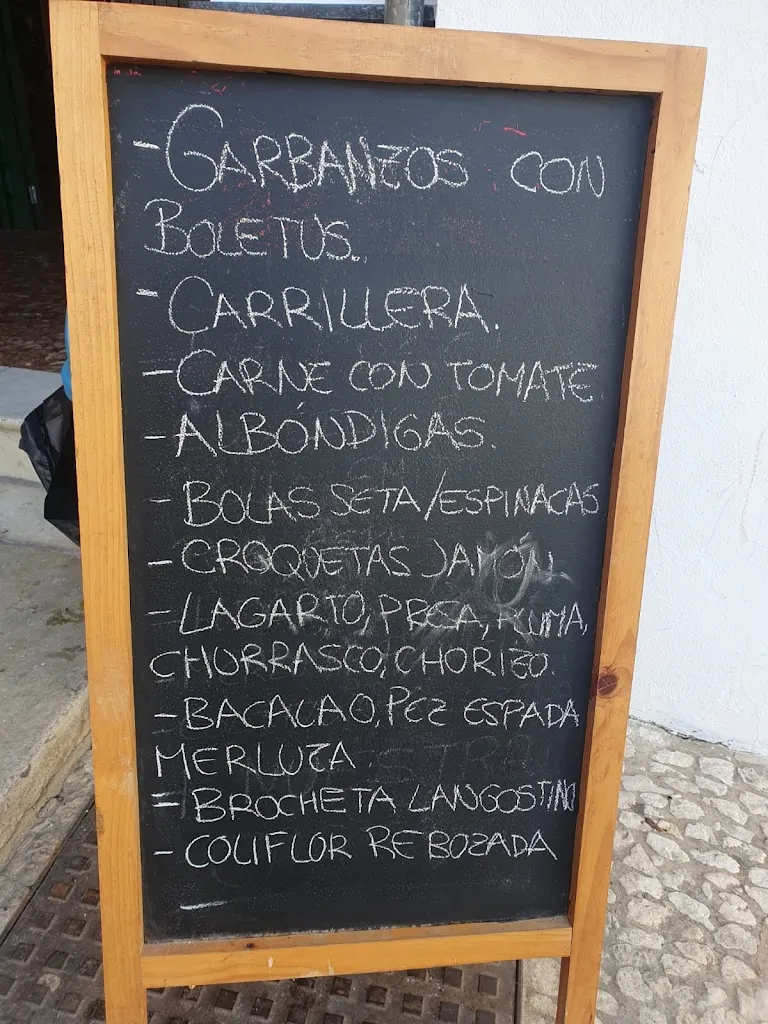 - GARBANZOS CON
BOLETUS.
- CARRILLERA.
- CARNE CON TOMATE.
- ALBÓNDIGAS.
- BOLAS SETA/ESPINACAS
- CROQUETAS JAMON
- LAGARTO, PRESA, PLUMA,
CHORRASCO, CHORIZO.
- BACALAO, PEZ ESPADA
MERLUZA
- BROCHETA LANGOSTINO
- COLIFLOR REBOZADA
-